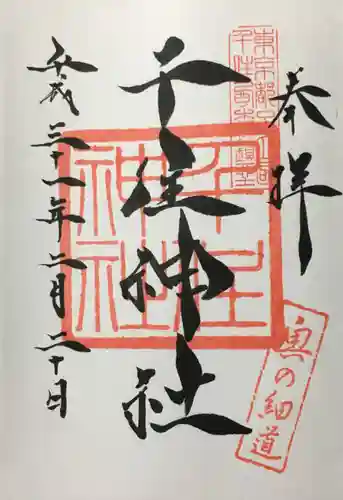 奉拝
東京都足
千住
千住神社
千住
神社
平成三十一年二月二十日
奥の細道